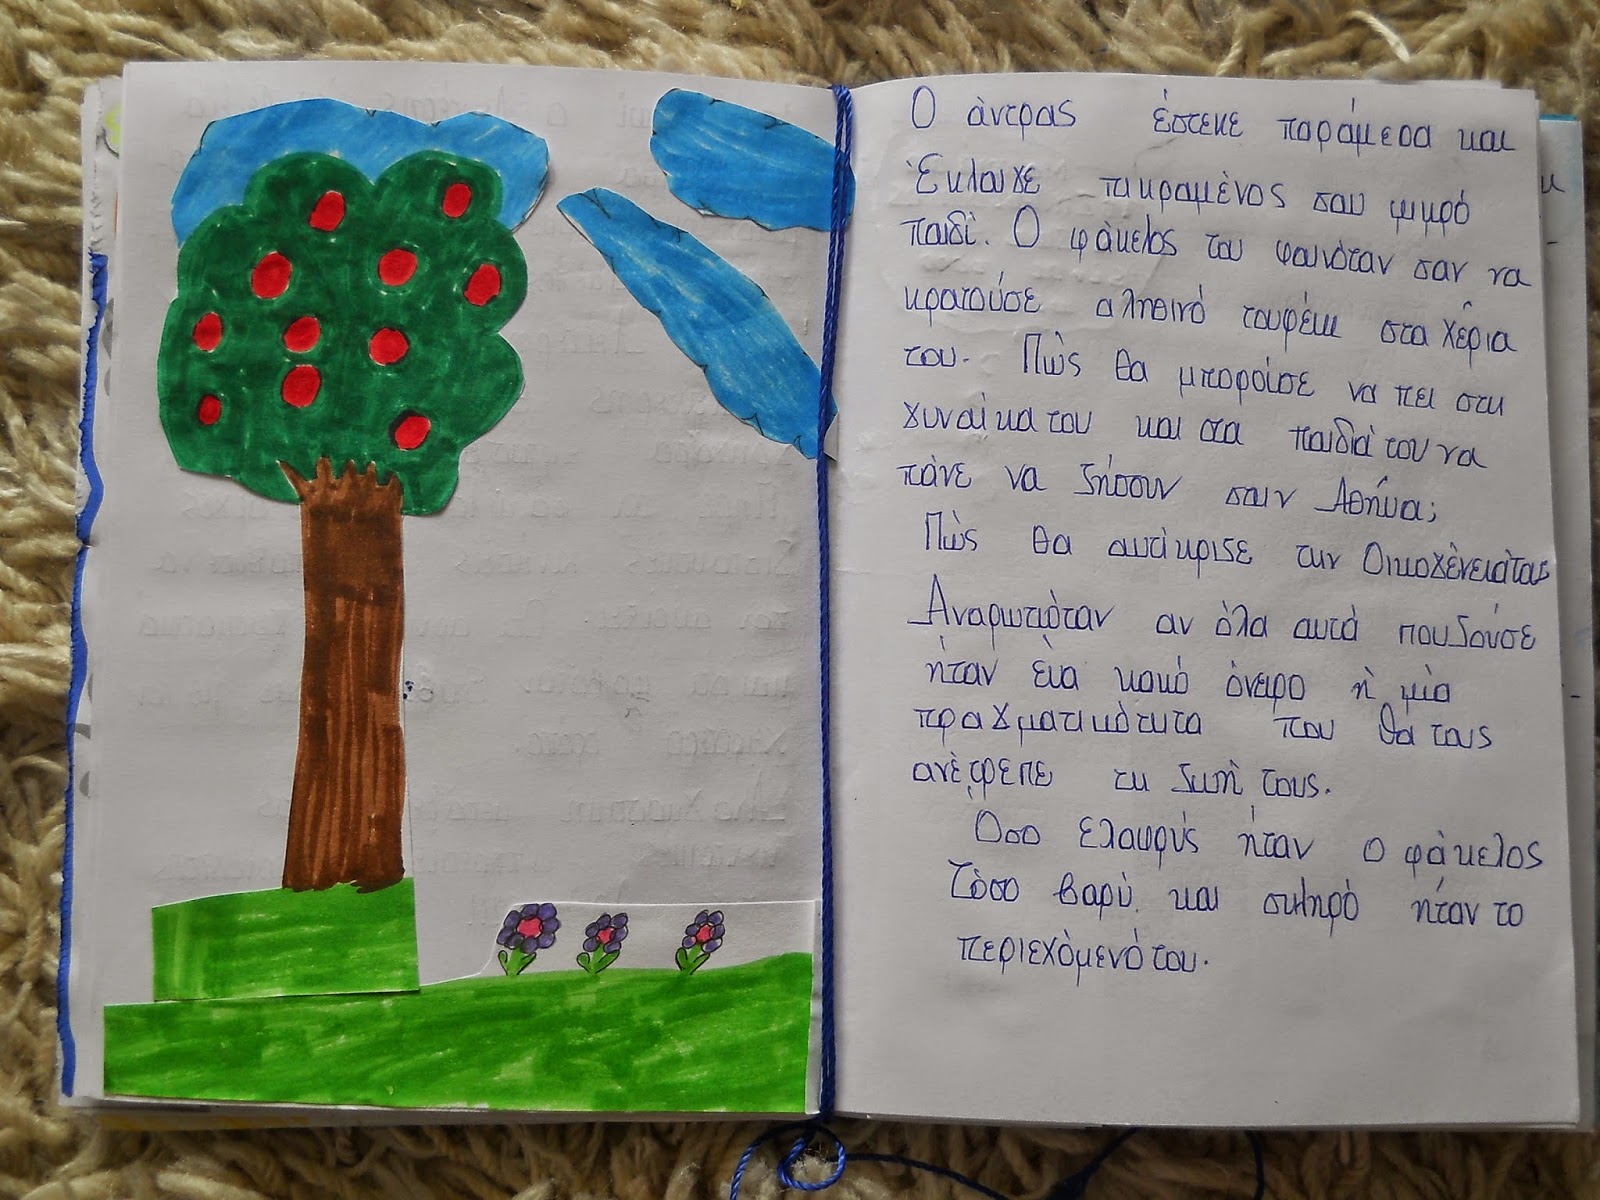 Ο άντρας έστεκε παράμερα και
έκλαιγε πικραμένος σαν μικρό
παιδί. Ο φάκελος του φαινόταν σαν να
κρατούσε αληθινό τουφέκι στα χέρια
του. Πώς θα μπορούσε να πει στη
γυναίκα του και στα παιδιά του να
πάνε να ζήσουν στην Αθήνα;
Πώς θα αντίκριζε την Οικογένειά τας
Αναρωτιόταν αν όλα αυτά που ζούσε
ήταν ένα κακό όνειρο ή μία
πραγματικότητα που θα τους
ανέτρεπε τη ζωή τους.
Όσο ελαφρύς ήταν ο φάκελος
Τόσο βαρύ και σκληρό ήταν το
περιεχόμενό του.